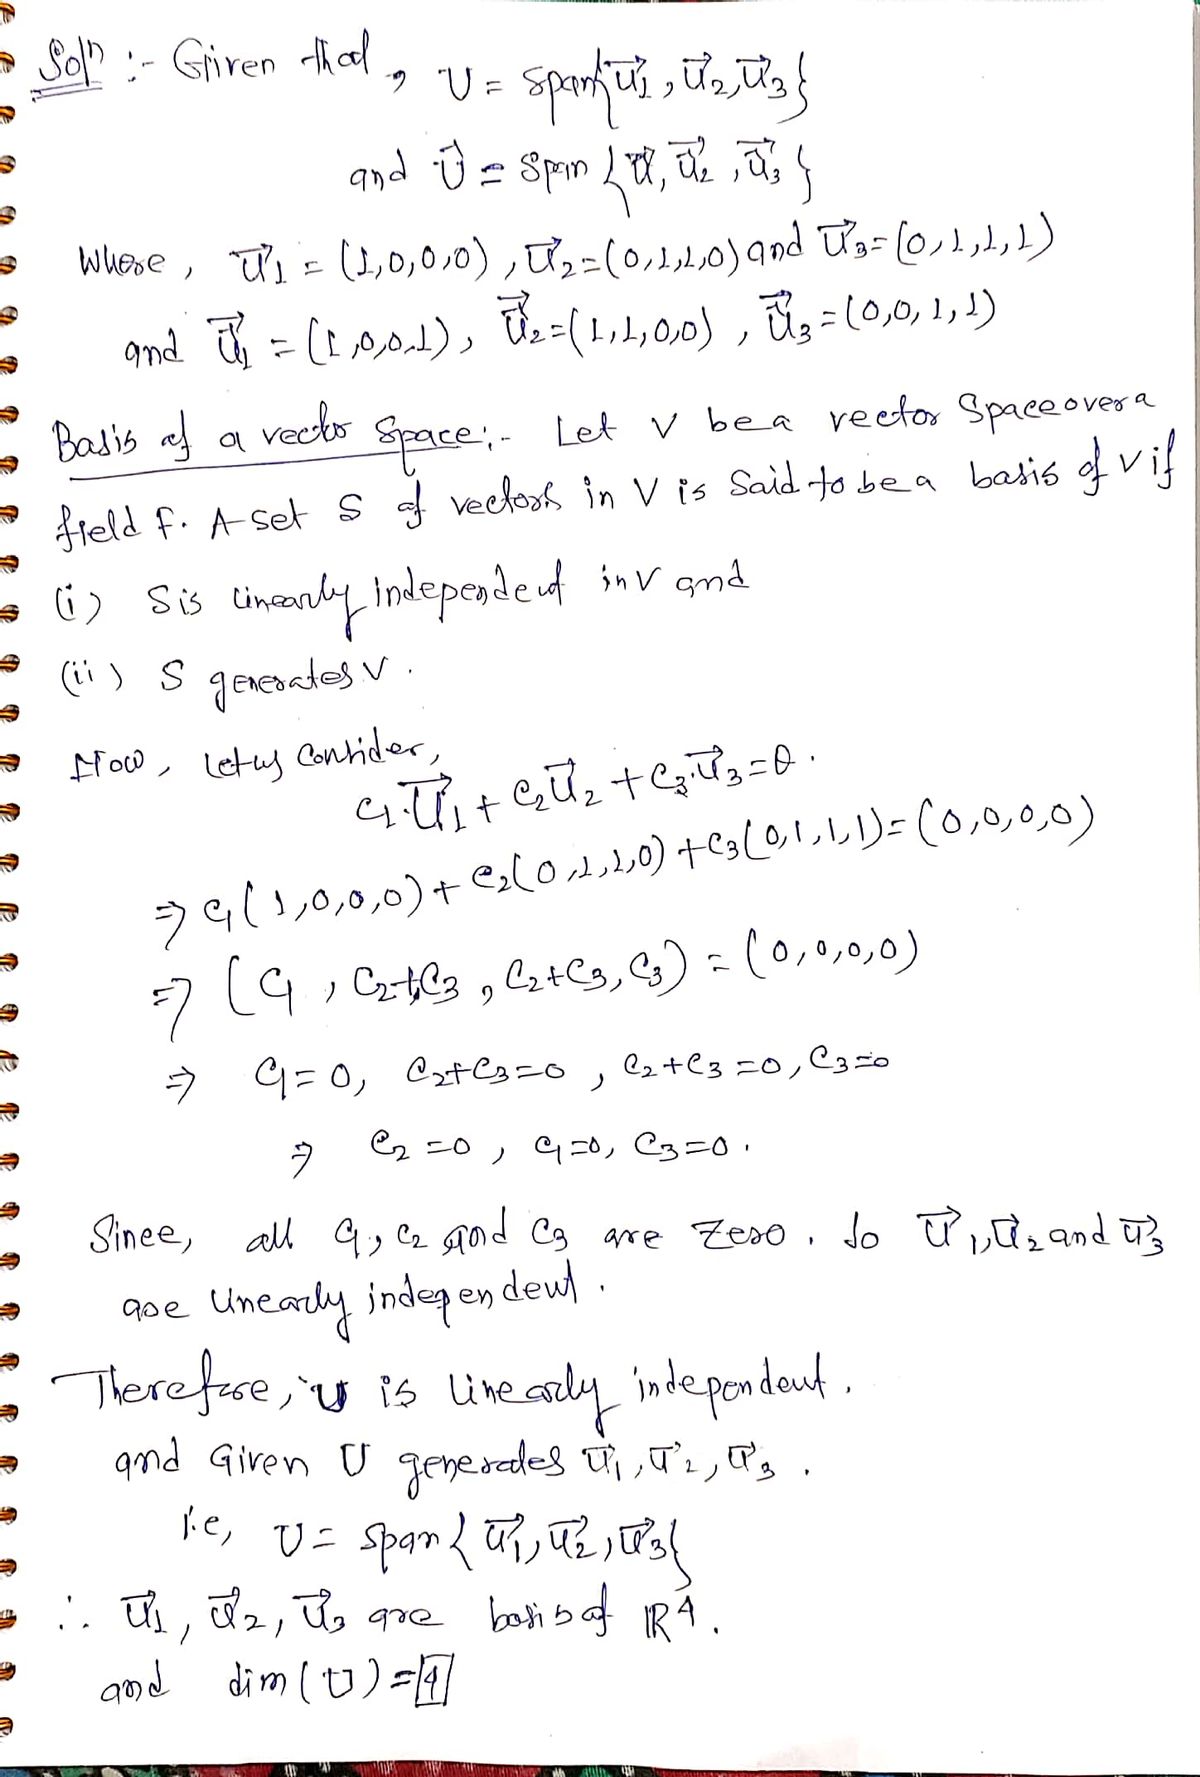 Soln :- Given that, U = span{u⃗1, u⃗2, u⃗3}
and U⃗ = Span {u⃗, u⃗2, u⃗3}
Where, u⃗1 = (1,0,0,0), u⃗2=(0,1,1,0) and u⃗3=(0,1,1,1)
and u⃗1 = (1,0,0,1), u⃗2=(1,1,0,0), u⃗3=(0,0,1,1)
Basis of a vector space:- Let V be a vector Space over a
field F. A set S of vectors in V is Said to be a basis of V if
(i) S is linearly independent in V and
(ii) S generates V.
Now, let us Consider,
c1.u⃗1 + c2u⃗2 + c3.u⃗3=θ.
⇒ c1(1,0,0,0) + c2(0,1,1,0) + c3(0,1,1,1)=(0,0,0,0)
⇒ (c1, c2+c3, c2+c3, c3) = (0,0,0,0)
⇒ c1=0, c2+c3=0, c2+c3=0, c3=0
⇒ c2=0, c1=0, c3=0.
Since, all c1, c2 and c3 are zero. So u⃗1, u⃗2 and u⃗3
are linearly independent.
Therefore, U is linearly independent.
and Given U generates u⃗1, u⃗2, u⃗3.
i.e, U = span{u⃗1, u⃗2, u⃗3}
∴ u⃗1, u⃗2, u⃗3 are basis of ℝ4.
and dim(U) = 4